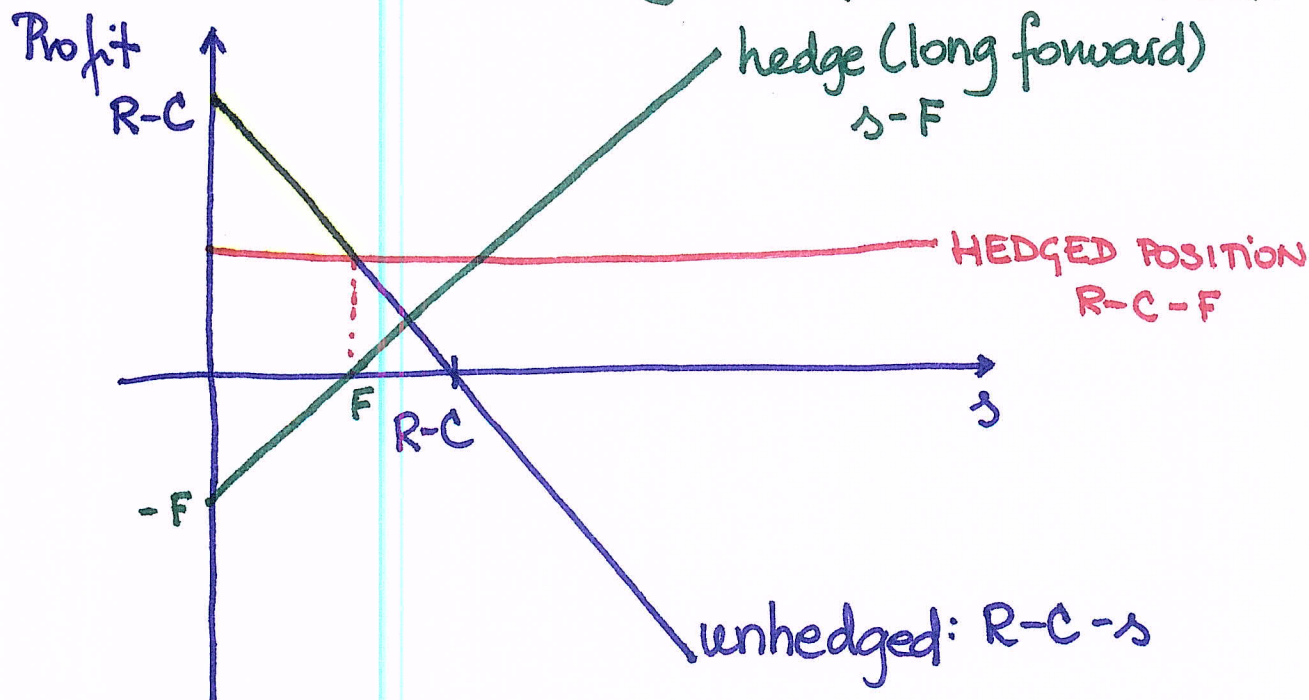 Profit
R-C
hedge (long forward)
s-F
HEDGED POSITION
R-C-F
F
R-C
s
-F
unhedged: R-C-s